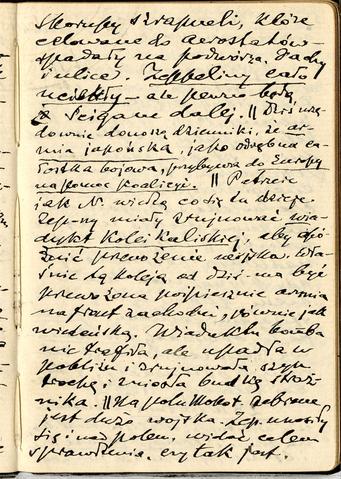 Skorupy szrapneli, które
celowane do aerostatów
spadały na podwórza, dachy
i ulice. Zeppeliny cało
uciekły – ale pewno będą
ścigane dalej. || Dziś urzę-
downie donoszą dzienniki, że ar-
mia japońska, jako odrębna ca-
łostka bojowa, przybywa do Europy
na pomoc koalicyi. ||
jak N. wiedzą co się tu dzieje.
Zep-ny miały zrujnować wia-
dukt Kolei Kaliskiej, aby opó-
źnić przewożenie wojska. Wła-
śnie tą koleją od dziś ma być
przewożona pośpiesznie armia
na front zachodni, równie jak
wiedeńską. Wiaduktu bomba
nie trafiła, ale upadła w
pobliżu i zrujnowała szyn
trochę i zniosła budkę stróż-
nika. || Na polu Mokot. zebrane
jest dużo wojska. Zep. unosiły
się i nad polem, widać celem
sprawdzenia, czy tak jest.